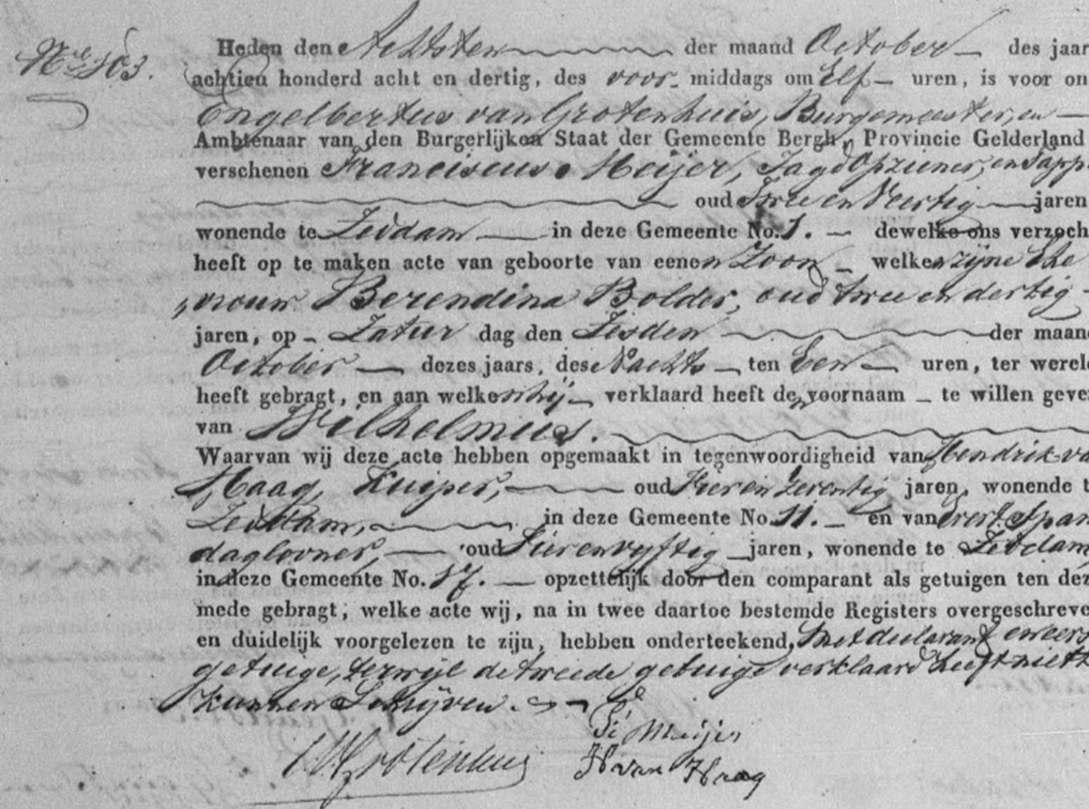 No 103.
Heden den Achtsten der maand October des jaar
achtien honderd acht en dertig, des voor middags om Elf uren, is voor on
Engelbertus van Grotenhuis, Burgemeester, en
Ambtenaar van den Burgerlijken Staat der Gemeente Bergh, Provincie Gelderland
verschenen Franciscus Meijer, Jagd Opziener, en Tapp
oud Twee en Veertig jaren
wonende te Zeddam in deze Gemeente No. 1. dewelke ons verzoch
heeft op te maken acte van geboorte van eenen Zoon welken zijne Ehe
vrouw Berendina Bolder, oud twee en dertig
jaren, op Zatur dag den Zesden der maand
October dezes jaars, des Nachts ten Een uren, ter wereld
heeft gebragt, en aan welken hij verklaard heeft den voornaam te willen geve
van Wilhelmus.
Waarvan wij deze acte hebben opgemaakt in tegenwoordigheid van Hendrik va
Haag, Kuiper, oud Vier en Zeventig jaren, wonende t
Zeddam, in deze Gemeente No. 11. en van Evert Span
daglooner, oud Vier en vyftig jaren, wonende te Zeddam
in deze Gemeente No. 17. opzettelijk door den comparant als getuigen ten dez
mede gebragt, welke acte wij, na in twee daartoe bestemde Registers overgeschreve
en duidelijk voorgelezen te zijn, hebben onderteekend, met declarant en eerste
getuige, terwijl de tweede getuige verklaard heeft niet t
kunnen Schrijven.
F Meijer
Grotenhuis H van Haag